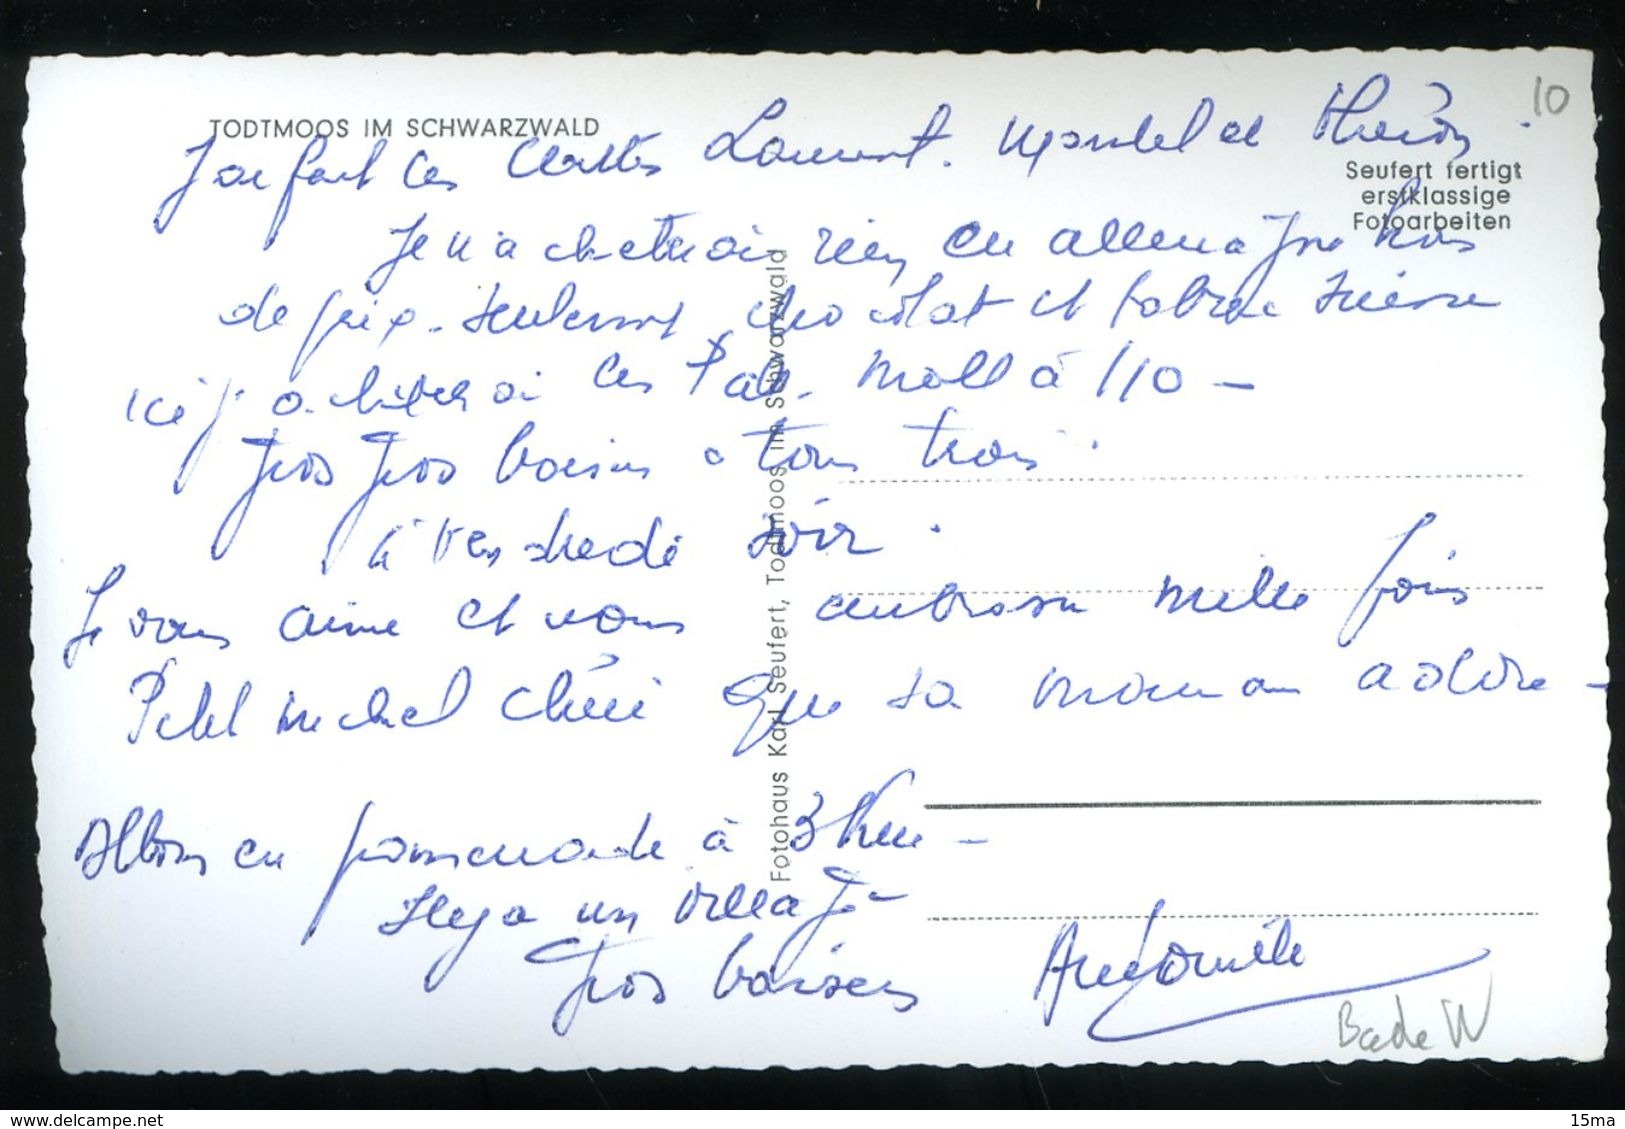 10
TODTMOOS IM SCHWARZWALD
J'ai fait les cartes Laurent. Mandel et
Seufert fertigt
erstklassige
Fotoarbeiten
Je n'achèterai rien en allemagne hors
de prix. Seulement chocolat et tabac Suisse
ici j'achèterai les Pall. Mall à 110 -
Gros Gros baisers a tous trois.
à Vendredi soir.
Je vous aime et vous embrasse mille fois
Petit michel chéri que sa maman adore -
Allons en promenade à 3 Km -
Il y a un village
Gros baisers
Fotohaus Karl Seufert, Todtmoos im Schwarzwald
Bade W
delcampe.net
15ma